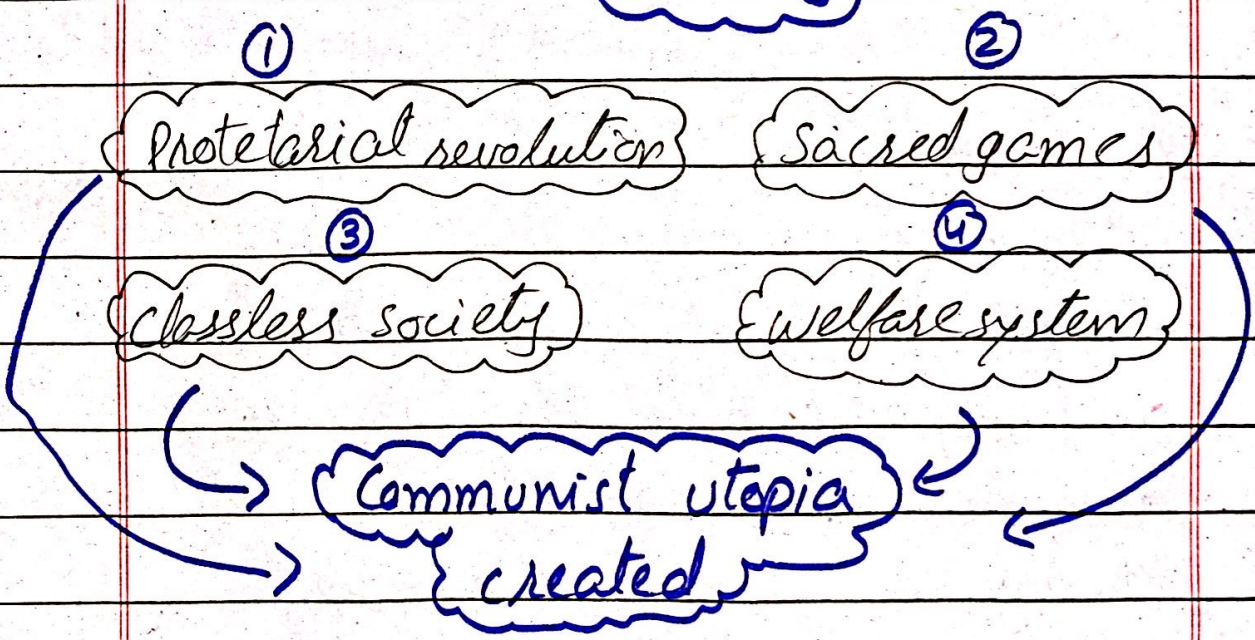 ① ②
Protetarial revolution Sacred games
③ ④
Classless society welfare system
Communist utopia
created